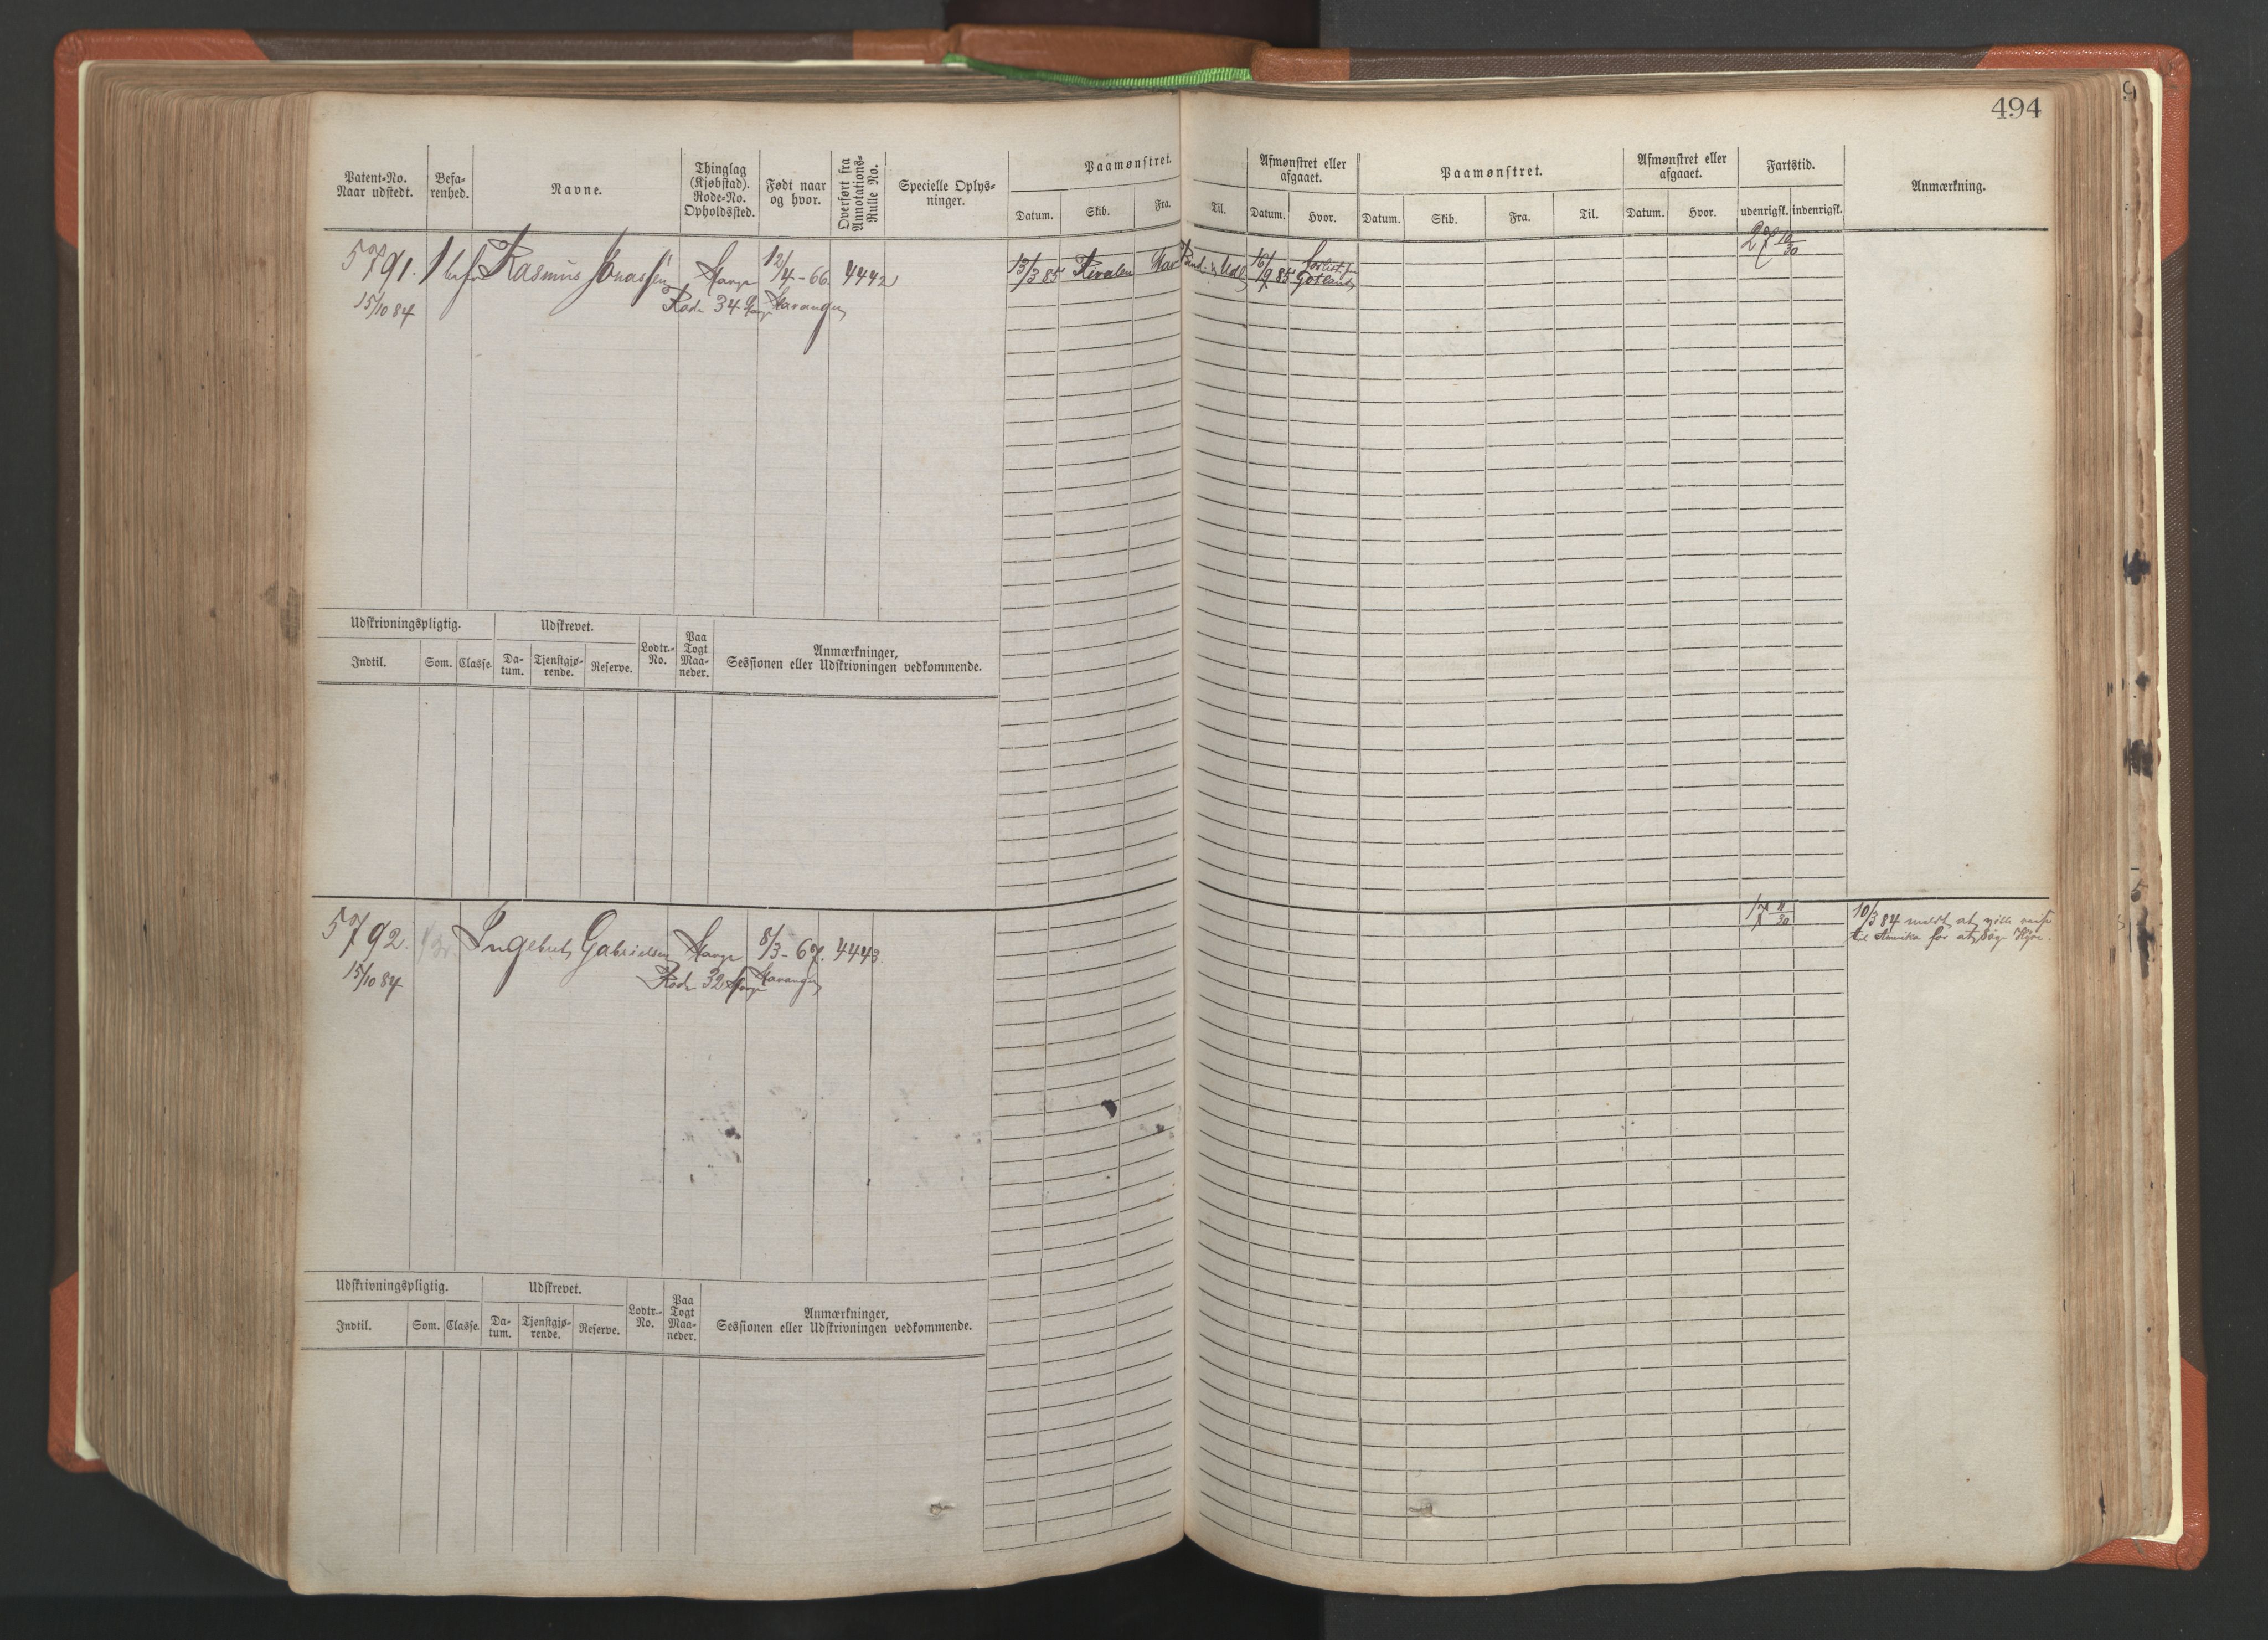 494
Patent-No.
Naar udstedt.
Befa-
renhed.
Navne.
Thinglag
(Kjøbstad).
Rode-No.
Opholdssted.
Født naar
og hvor.
Overført fra
Annotations-
Rulle No.
Specielle Oplys-
ninger.
Paamønstret.
Datum. Skib. Fra. Til.
Afmønstret eller
afgaaet.
Datum. Hvor.
Paamønstret.
Datum. Skib. Fra. Til.
Afmønstret eller
afgaaet.
Datum. Hvor.
Fartstid.
udenrigsk. indenrigsk.
Anmærkning.
5791. 1 Rasmus Jonassen 12/4-66. 4442 13/3 85 16/9 85 Forlist
27 10/30
Gotland
15/10 84 Rode 34 Stavanger
Udskrivningspligtig. Udskrevet.
Lodtr.-
No.
Paa
Togt
Maa-
neder.
Anmærkninger,
Sessionen eller Udskrivningen vedkommende.
Indtil. Som. Classe.
Da-
tum.
Tjenstgjø-
rende.
Reserve.
5792. Ingebret Gabrielsen 8/3-67. 4443.
17 11/30
10/3 84 meldt at ville reise
til Amerika for at søge Hyre.
15/10 84 Rode 32 Stavanger
Udskrivningspligtig. Udskrevet.
Lodtr.-
No.
Paa
Togt
Maa-
neder.
Anmærkninger,
Sessionen eller Udskrivningen vedkommende.
Indtil. Som. Classe.
Da-
tum.
Tjenstgjø-
rende.
Reserve.